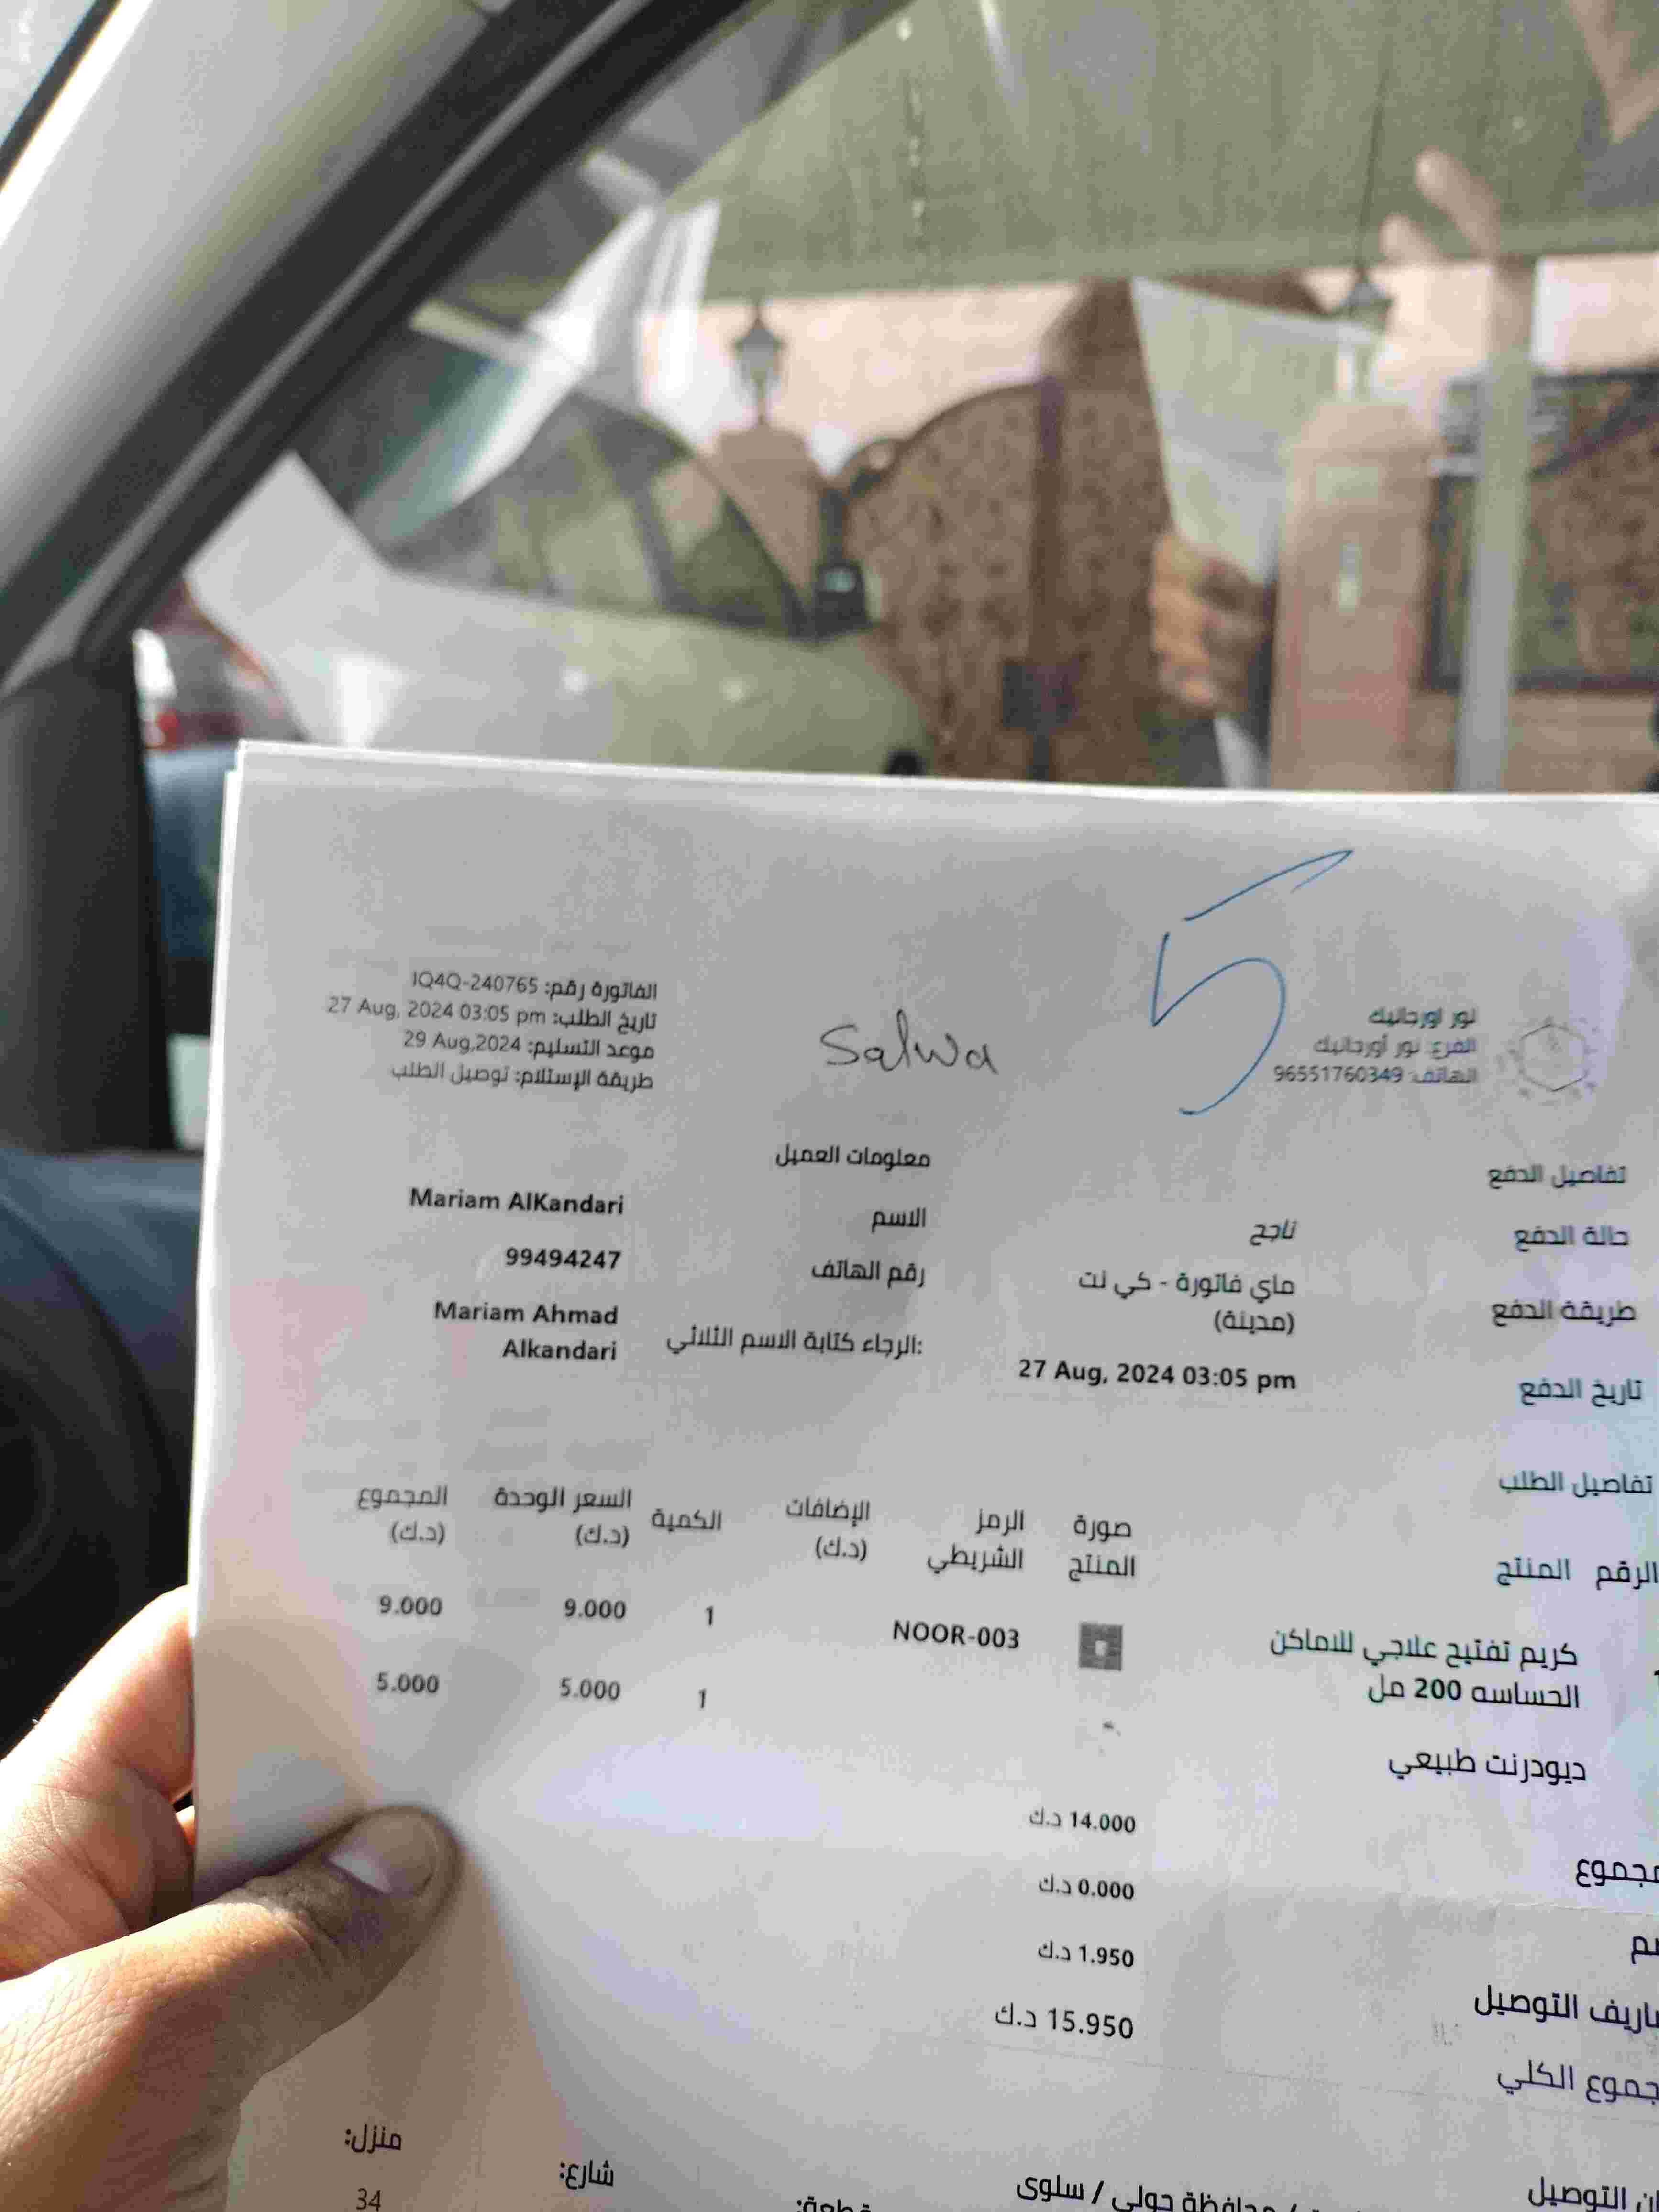 5
Salwa
نور اورجانيك
الفرع: نور أورجانيك
الهاتف: 96551760349
الفاتورة رقم: IQ4Q-240765
تاريخ الطلب: 27 Aug, 2024 03:05 pm
موعد التسليم: 29 Aug,2024
طريقة الإستلام: توصيل الطلب
تفاصيل الدفع
حالة الدفع ناجح
طريقة الدفع ماي فاتورة - كي نت
(مدينة)
تاريخ الدفع 27 Aug, 2024 03:05 pm
معلومات العميل
الاسم Mariam AlKandari
رقم الهاتف 99494247
الرجاء كتابة الاسم الثلاثي: Mariam Ahmad
Alkandari
تفاصيل الطلب
الرقم المنتج صورة الرمز الإضافات الكمية السعر الوحدة المجموع
المنتج الشريطي (د.ك) (د.ك) (د.ك)
كريم تفتيح علاجي للاماكن NOOR-003 1 9.000 9.000
الحساسه 200 مل
ديودرنت طبيعي 1 5.000 5.000
14.000 د.ك
0.000 د.ك
التوصيل 1.950 د.ك
الكلي 15.950 د.ك
التوصيل
حولي / سلوى
شارع:
منزل:
34